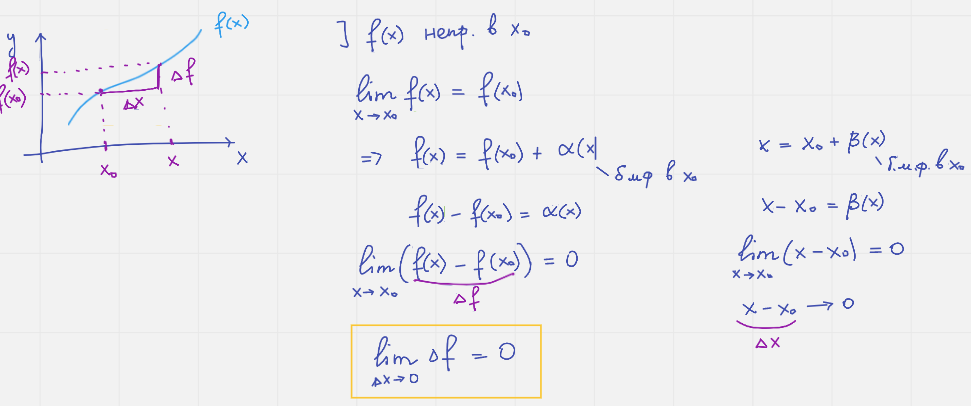 y
f(x)
f(x)
f(x₀)
Δf
Δx
x₀
x
x
] f(x) непр. в x₀
lim f(x) = f(x₀)
x→x₀
=> f(x) = f(x₀) + α(x)
б.м.ф в x₀
f(x) - f(x₀) = α(x)
lim (f(x) - f(x₀)) = 0
x→x₀
Δf
lim Δf = 0
Δx→0
x = x₀ + β(x)
б.м.ф. в x₀
x - x₀ = β(x)
lim (x - x₀) = 0
x→x₀
x - x₀ → 0
Δx